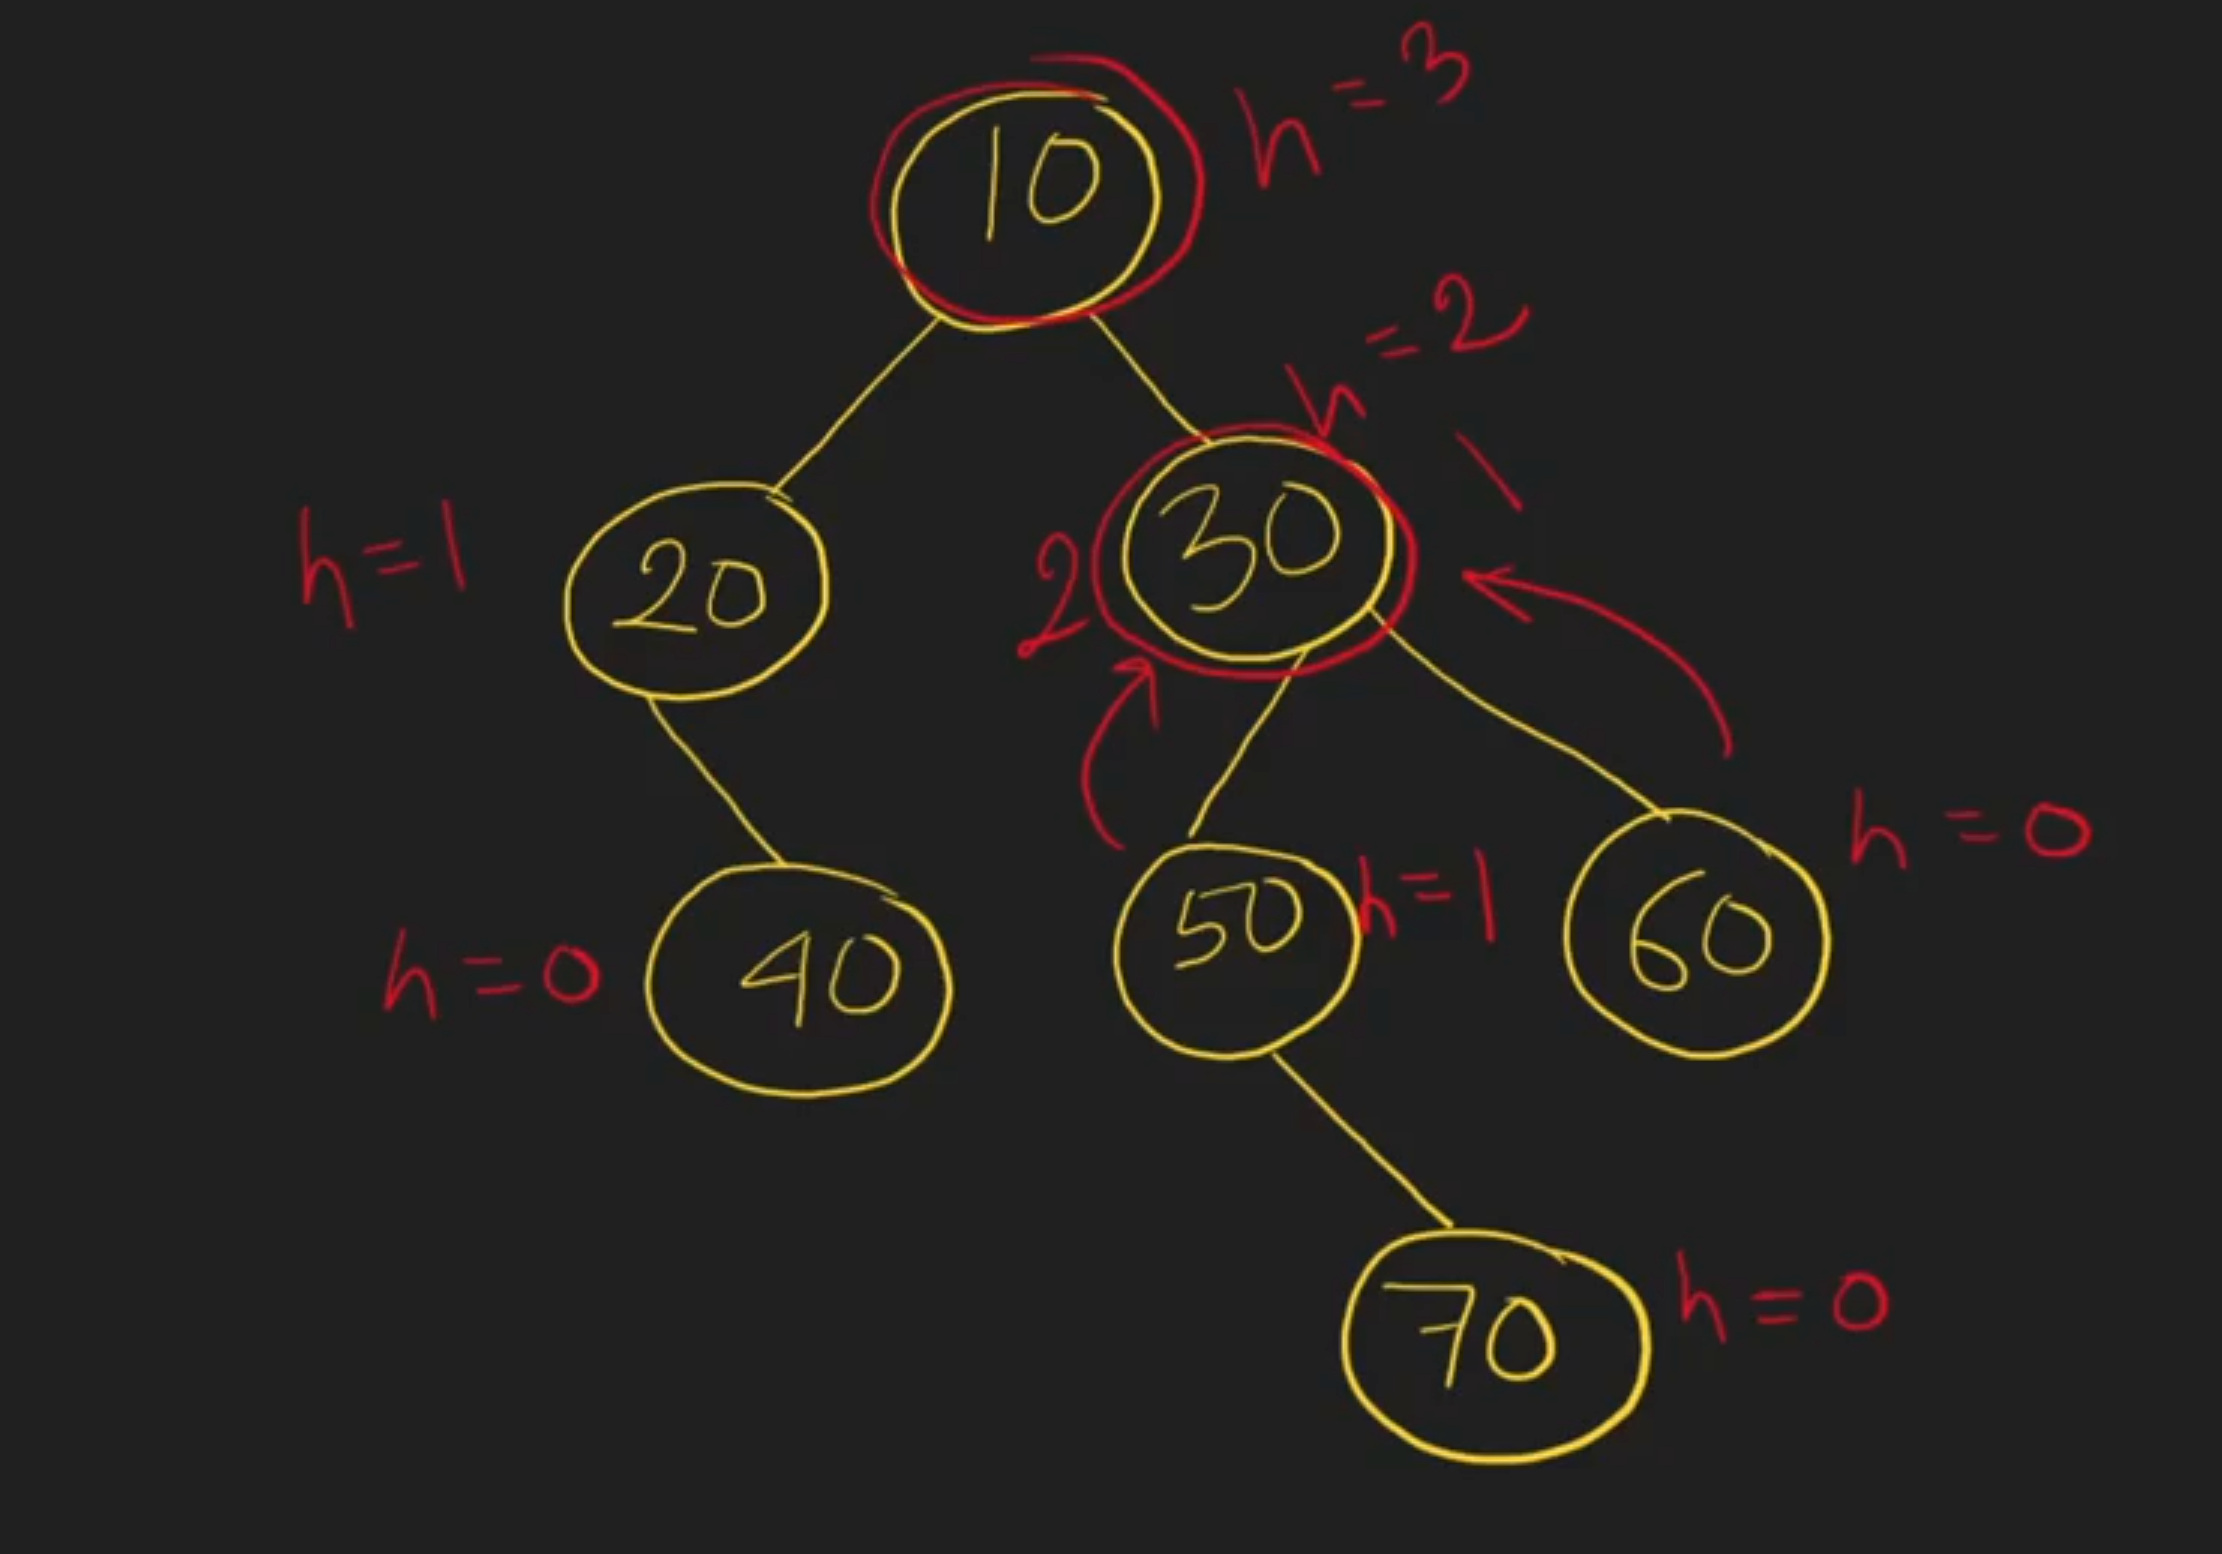 10
h=3
h=2
\
h=1
20
2
30
h=0
40
50
h=1
60
h=0
70
h=0